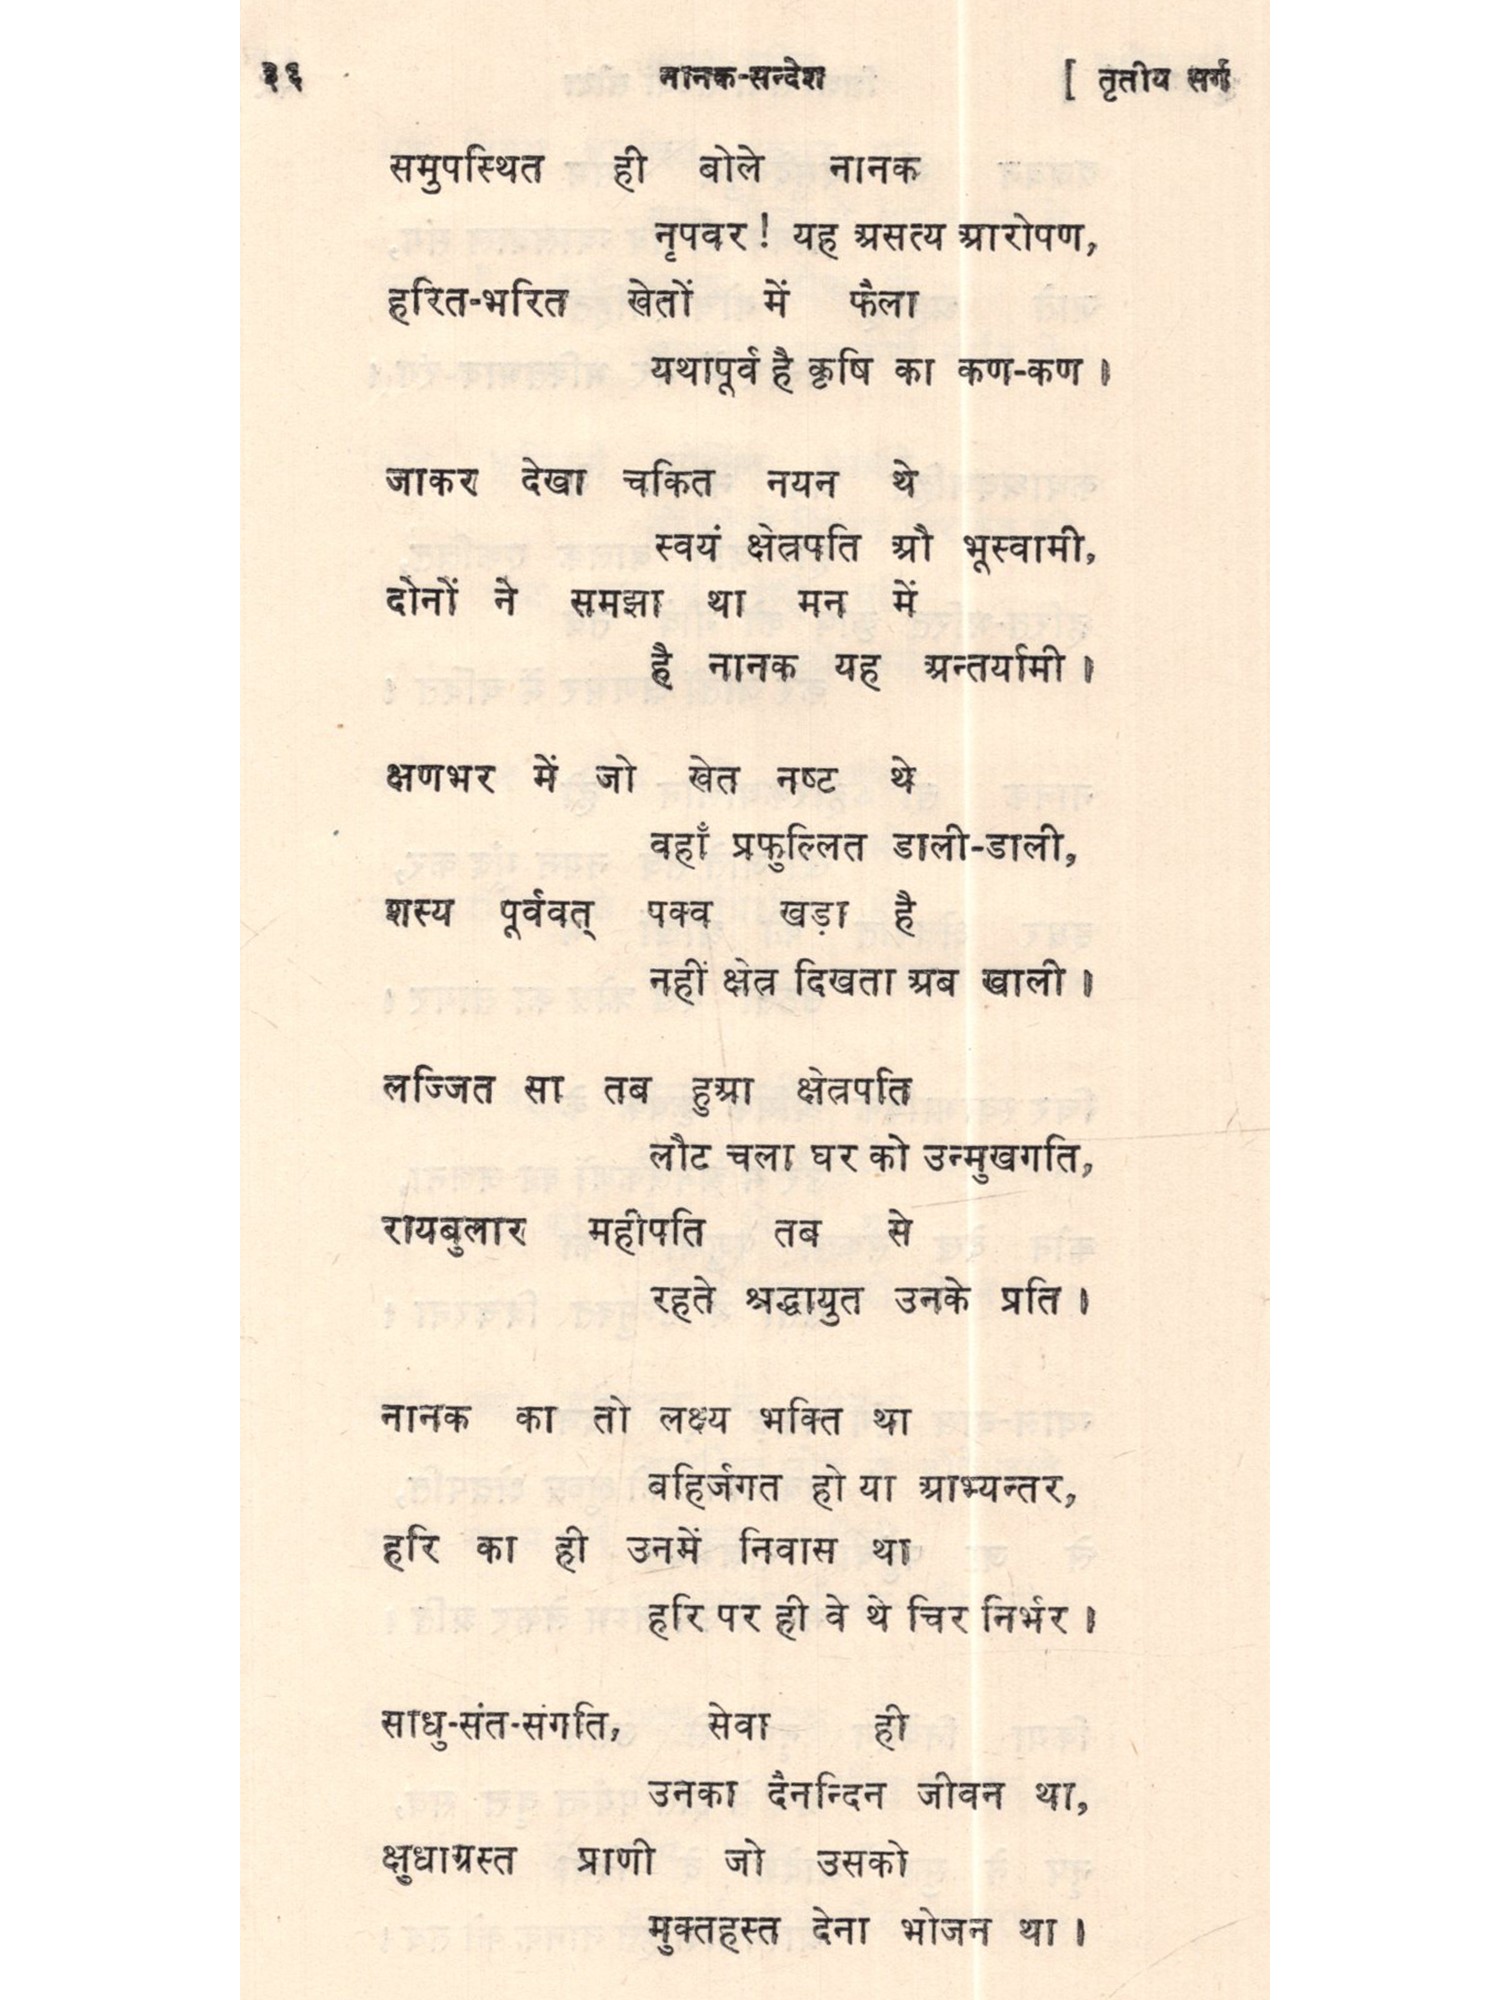 ३६ नानक-सन्देश [ तृतीय सर्ग
समुपस्थित ही बोले नानक
नृपवर ! यह असत्य आरोपण,
हरित-भरित खेतों में फैला
यथापूर्व है कृषि का कण-कण ।
जाकर देखा चकित नयन थे
स्वयं क्षेत्रपति औ भूस्वामी,
दोनों ने समझा था मन में
है नानक यह अन्तर्यामी ।
क्षणभर में जो खेत नष्ट थे
वहाँ प्रफुल्लित डाली-डाली,
शस्य पूर्ववत् पक्व खड़ा है
नहीं क्षेत्र दिखता अब खाली ।
लज्जित सा तब हुआ क्षेत्रपति
लौट चला घर को उन्मुखगति,
रायबुलार महीपति तब से
रहते श्रद्धायुत उनके प्रति ।
नानक का तो लक्ष्य भक्ति था
बहिर्जगत हो या आभ्यन्तर,
हरि का ही उनमें निवास था
हरि पर ही वे थे चिर निर्भर ।
साधु-संत-संगति, सेवा ही
उनका दैनन्दिन जीवन था,
क्षुधाग्रस्त प्राणी जो उसको
मुक्तहस्त देना भोजन था ।